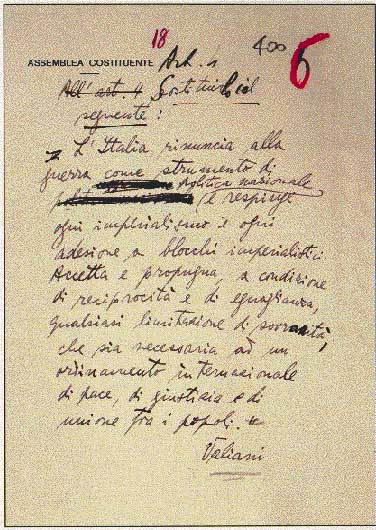 18
400
6
ASSEMBLEA COSTITUENTE Art. 1
All' art. 4 Sostituire il
seguente:
"L'Italia rinuncia alla
guerra come strumento di
politica nazionale
e respinge
ogni imperialismo e ogni
adesione a blocchi imperialistici.
Accetta e propugna, a condizione
di reciprocità e di eguaglianza,
qualsiasi limitazione di sovranità,
che sia necessaria ad un
ordinamento internazionale
di pace, di giustizia e di
unione fra i popoli."
Valiani